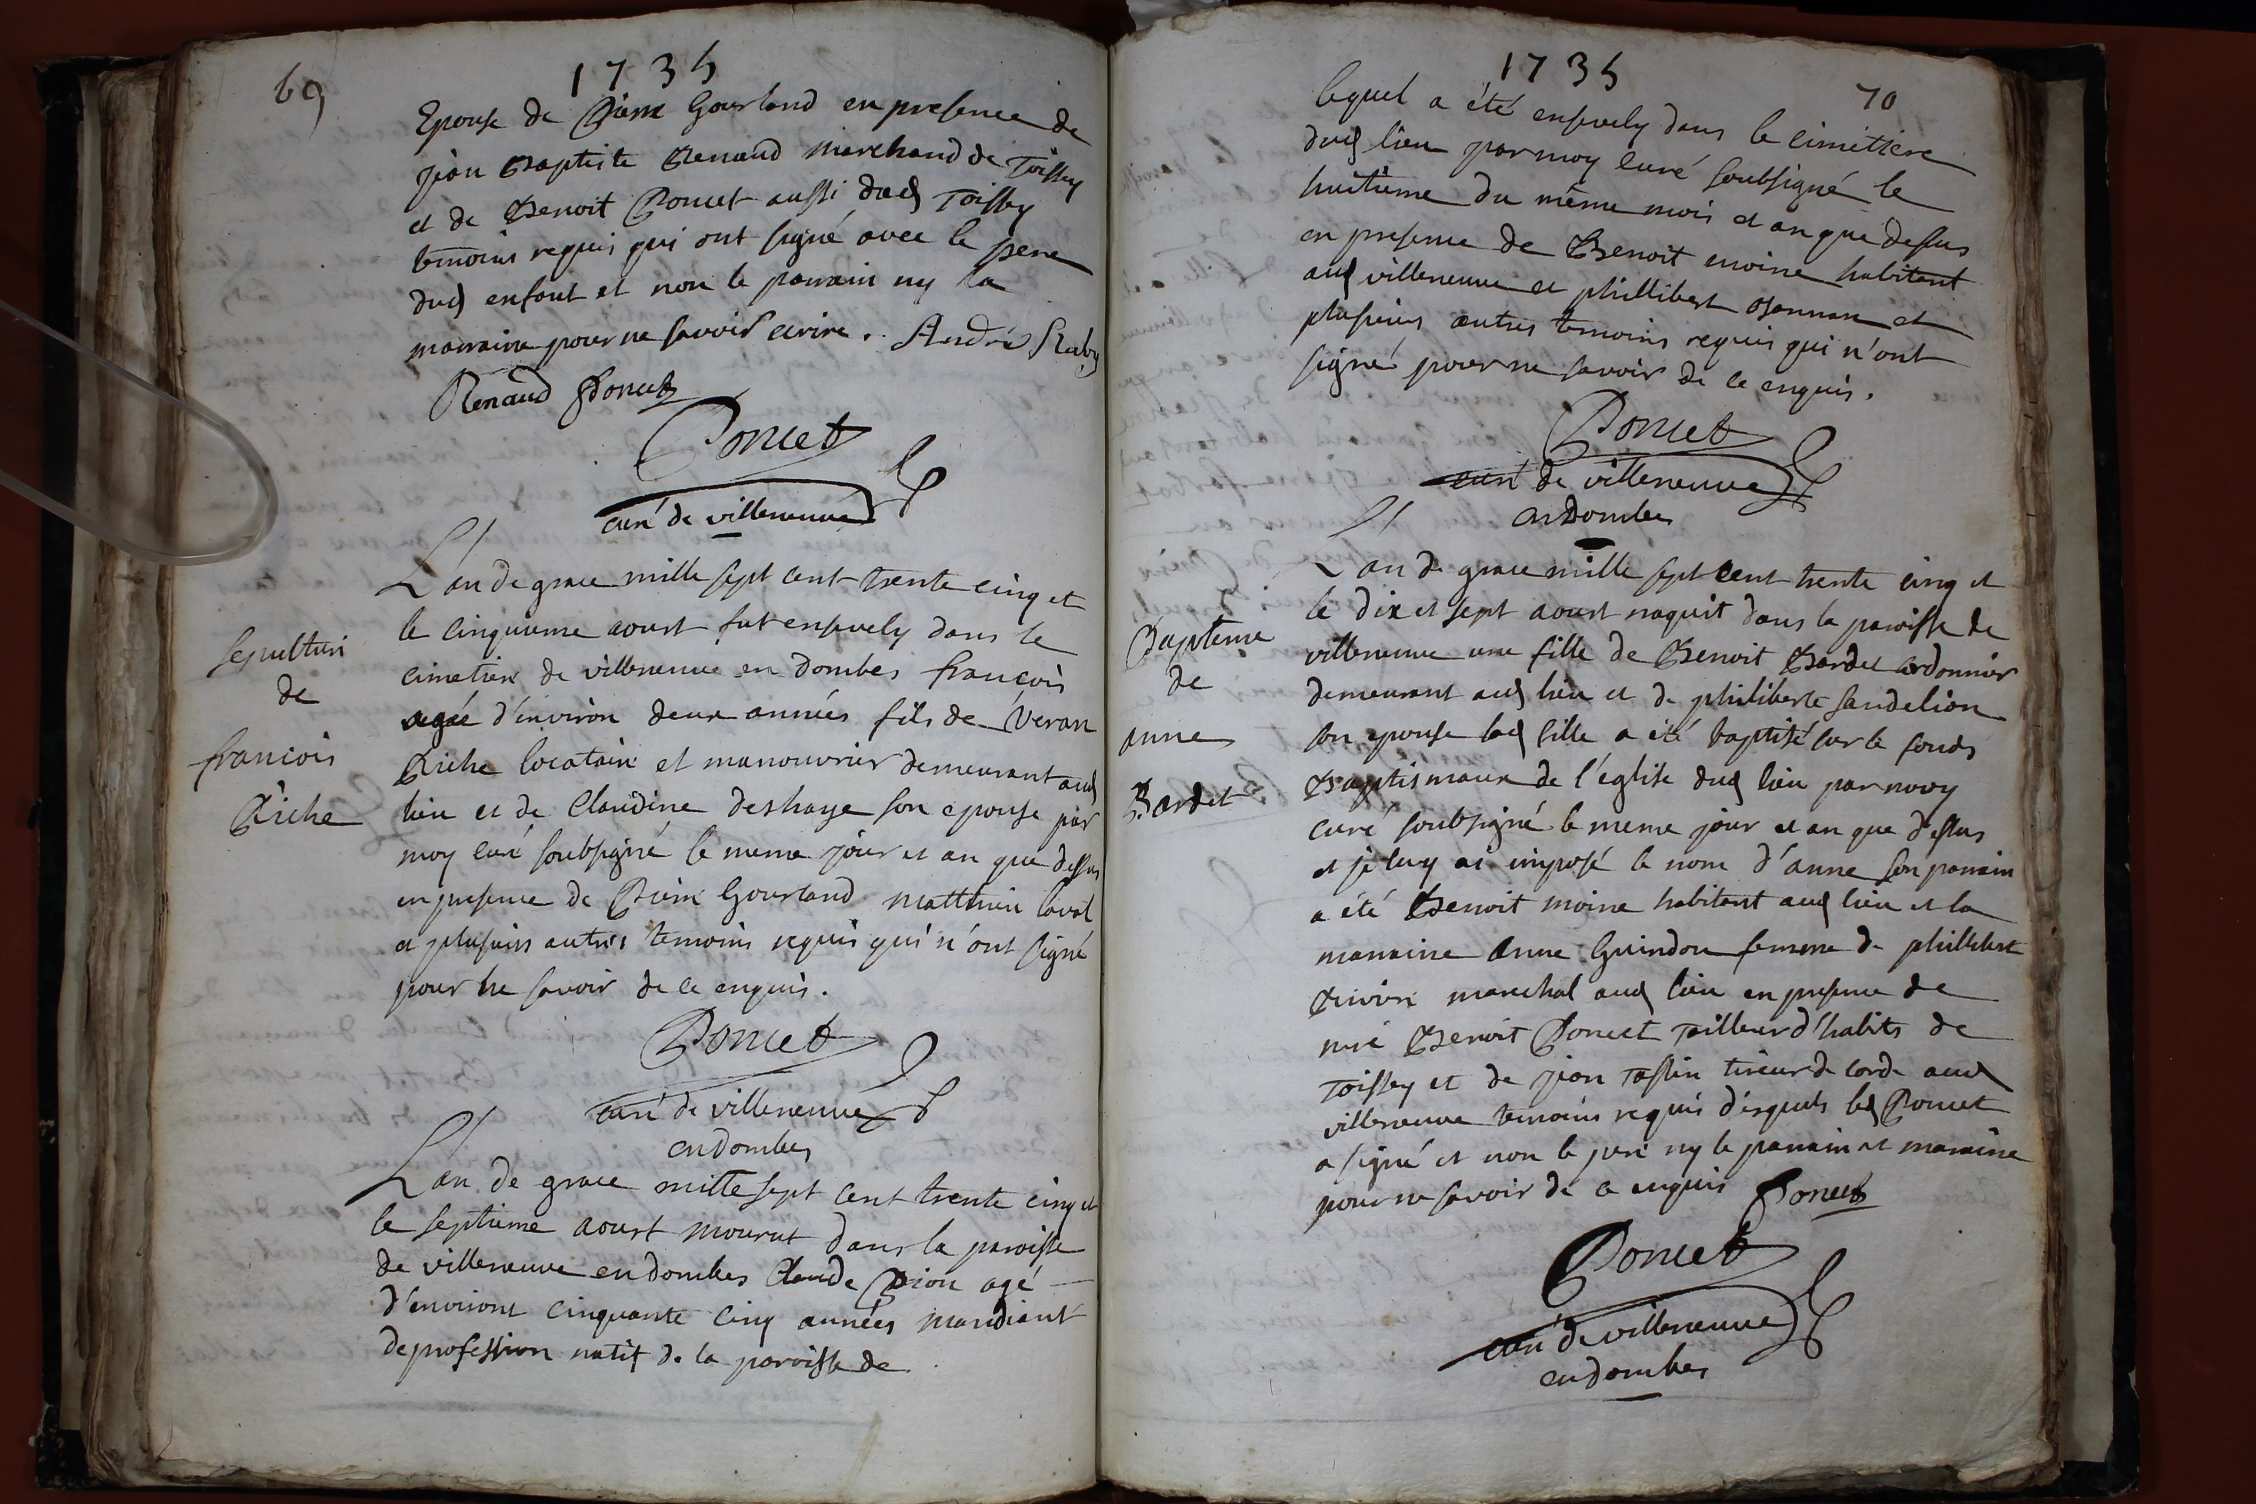 69
1735
Epouse de Pierre Gourland en presence de
jean Baptiste Renaud marchand de Toissey
et de Benoit Poncet aussi dud Toissey
temoins requis qui ont signé avec le pere
dud enfant et non le parrain ny la
marraine pour ne savoir ecrire. André Ruby
Renaud Poncet
Poncet
curé de villeneuve
L'an de grace mille sept cent trente cinq et
le cinquieme aoust fut ensevely dans le
cimetiere de villeneuve en Dombes francois
agée d'environ deux années fils de Veran
Riche locataire et manouvrier demeurant aud
lieu et de Claudine deshaye son epouse par
moy curé soubsigné le meme jour et an que dessus
en presence de Pierre Gourland matthieu laval
et plusieurs autres temoins requis qui n'ont signé
pour ne savoir de ce enquis.
sepulture
de
francois
Riche
Poncet
curé de villeneuve
en dombes
L'an de grace mille sept cent trente cinq et
le septieme aoust mourut dans la paroisse
de villeneuve en dombes Claude agé
d'environt cinquante cinq années mandiant
de profession natif de la paroisse de
1735
70
lequel a été ensevely dans le cimetiere
dud lieu par moy curé soubsigné le
huitieme du même mois et an que dessus
en presence de Benoit moine habitant
aud villeneuve et phillibert et
plusieurs autres temoins requis qui n'ont
signé pour ne savoir de ce enquis.
Poncet
curé de villeneuve
en Dombes
L'an de grace mille sept cent trente cinq et
le dix et sept aoust naquit dans la paroisse de
villeneuve une fille de Benoit Bardet cordonnier
demeurant aud lieu et de philiberte sandelion
son epouse lad fille a été baptisé sur le fonds
Baptismaux de l'église dud lieu par moy
curé soubsigné le meme jour et an que dessus
et je luy ai imposé le nom d'anne son parrain
a été Benoit moine habitant aud lieu et la
marraine anne Guindon femme de phillibert
marechal aud lieu en presence de
Benoit Poncet Tailleur d'habits de
Toissey et de jean tireur de corde aud
villeneuve temoins requis desquels led Poncet
a signé et non le pere ny le parrain et marraine
pour ne savoir de ce enquis Poncet
Bapteme
de
anne
Bardet
Poncet
curé de villeneuve
en dombes